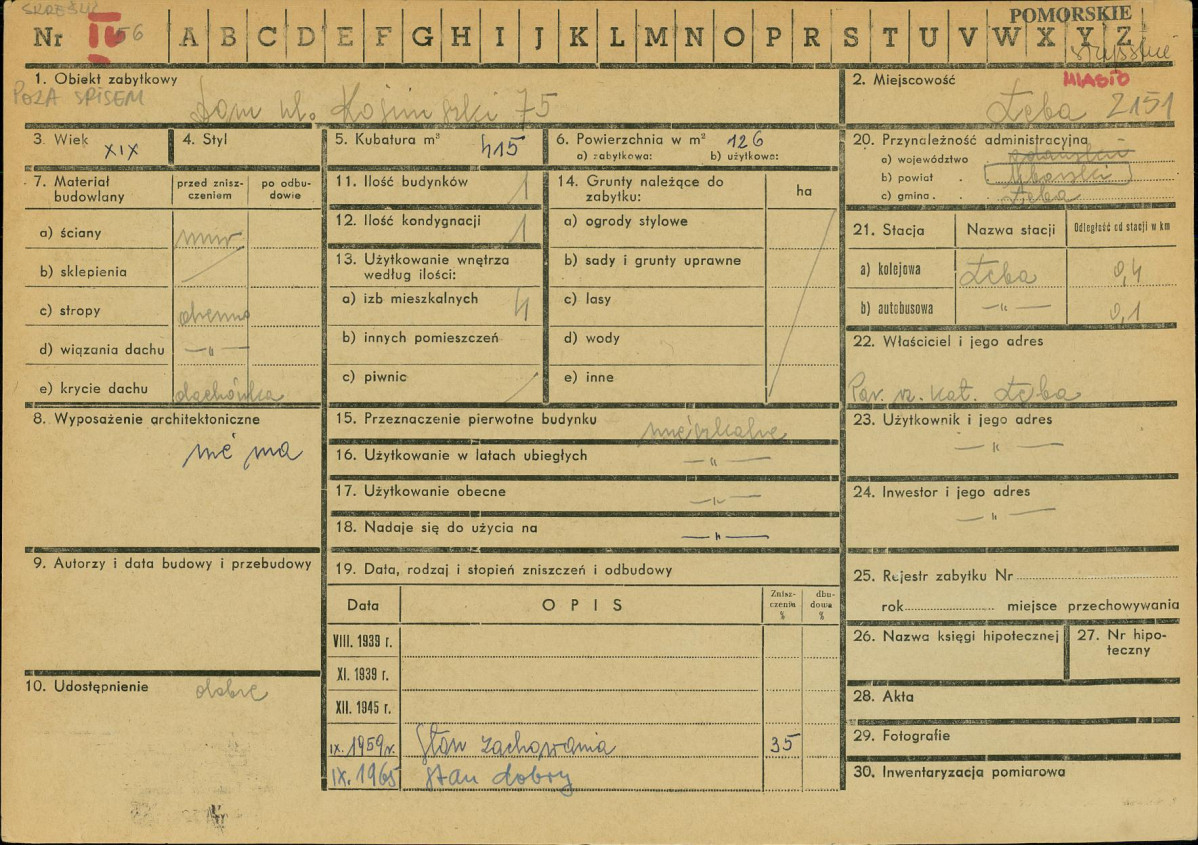 SKREŚLIĆ
POMORSKIE
Nr IV 56 A B C D E F G H I J K L M N O P R S T U V W X Y Z
słupskie
1. Obiekt zabytkowy
POZA SPISEM
Dom ul. 75
2. Miejscowość
MIASTO
Łeba 2151
3. Wiek
XIX
4. Styl
5. Kubatura m³ 415
6. Powierzchnia w m² 126
a) zabytkowa: b) użytkowa:
20. Przynależność administracyjna
a) województwo gdańskie
b) powiat
c) gmina Łeba
7. Materiał budowlany
przed znisz-
czeniem
po odbu-
dowie
a) ściany mur
b) sklepienia
c) stropy drewno
d) wiązania dachu —„—
e) krycie dachu dachówka
11. Ilość budynków 1
12. Ilość kondygnacji 1
13. Użytkowanie wnętrza
według ilości:
a) izb mieszkalnych 4
b) innych pomieszczeń
c) piwnic
14. Grunty należące do
zabytku:
ha
a) ogrody stylowe
b) sady i grunty uprawne
c) lasy
d) wody
e) inne
21. Stacja Nazwa stacji Odległość od stacji w km
a) kolejowa Łeba 0,4
b) autobusowa —„— 0,1
22. Właściciel i jego adres
Par. rz. kat. Łeba
8. Wyposażenie architektoniczne
nie ma
15. Przeznaczenie pierwotne budynku mieszkalne
16. Użytkowanie w latach ubiegłych —„—
17. Użytkowanie obecne —„—
18. Nadaje się do użycia na —„—
23. Użytkownik i jego adres
—„—
24. Inwestor i jego adres
—„—
9. Autorzy i data budowy i przebudowy
19. Data, rodzaj i stopień zniszczeń i odbudowy
Data OPIS
Znisz-
czenia
%
dbu-
dowa
%
VIII. 1939 r.
XI. 1939 r.
XII. 1945 r.
IX. 1959 r. Stan zachowania 35
IX. 1965 stan dobry
10. Udostępnienie dobre
25. Rejestr zabytku Nr
rok miejsce przechowywania
26. Nazwa księgi hipotecznej
27. Nr hipo-
teczny
28. Akta
29. Fotografie
30. Inwentaryzacja pomiarowa